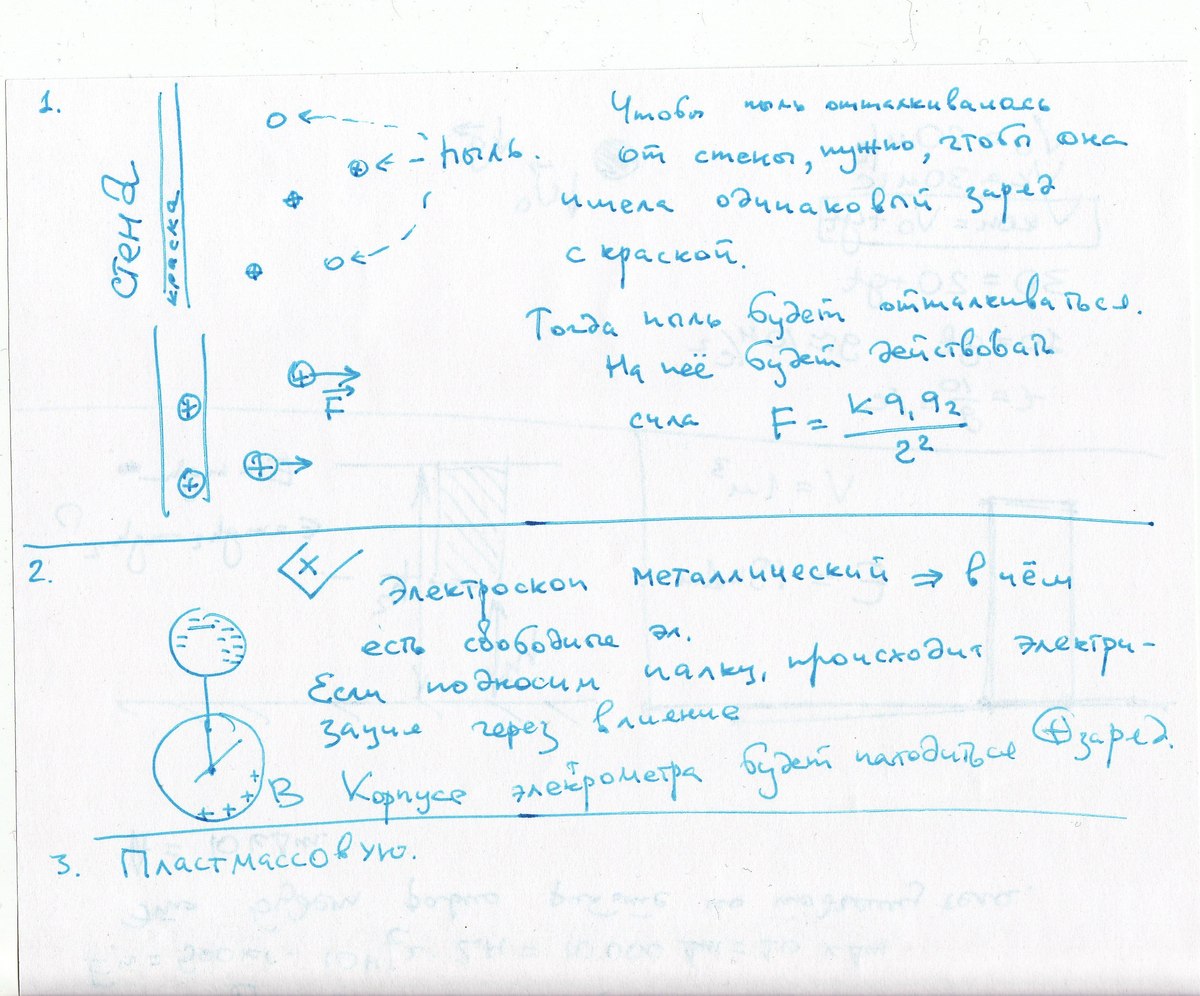 1.
стена
краска
пыль.
Чтобы пыль отталкивалась
от стены, нужно, чтобы она
имела одинаковый заряд
с краской.
Тогда пыль будет отталкиваться.
На неё будет действовать
сила F = k q1 q2 / r²
+ + F
+ +
2.
x
Электроскоп металлический ⇒ в нём
есть свободные эл.
Если подносим палку, происходит электри-
зация через влияние
В корпусе электрометра будет находиться + заряд.
+ + + +
3. Пластмассовую.